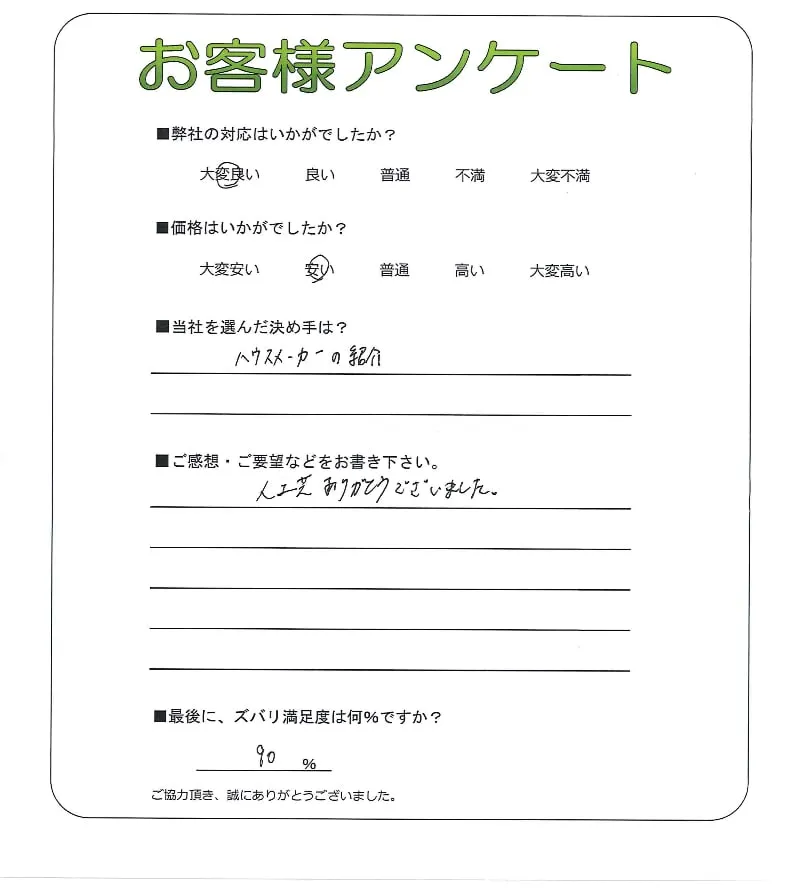 お客様アンケート
■弊社の対応はいかがでしたか？
大変良い 良い 普通 不満 大変不満
■価格はいかがでしたか？
大変安い 安い 普通 高い 大変高い
■当社を選んだ決め手は？
ハウスメーカーの紹介
■ご感想・ご要望などをお書き下さい。
人工芝ありがとうございました。
■最後に、ズバリ満足度は何％ですか？
90 ％
ご協力頂き、誠にありがとうございました。